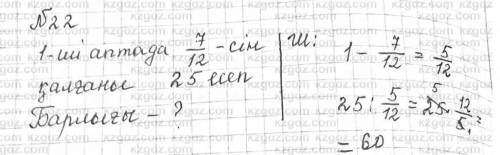 №22
1-ші аптада 7/12-сін
қалғаны 25 есеп
Барлығы - ?
Ш:
1 - 7/12 = 5/12
25 : 5/12 = 25 · 12/5 =
= 60